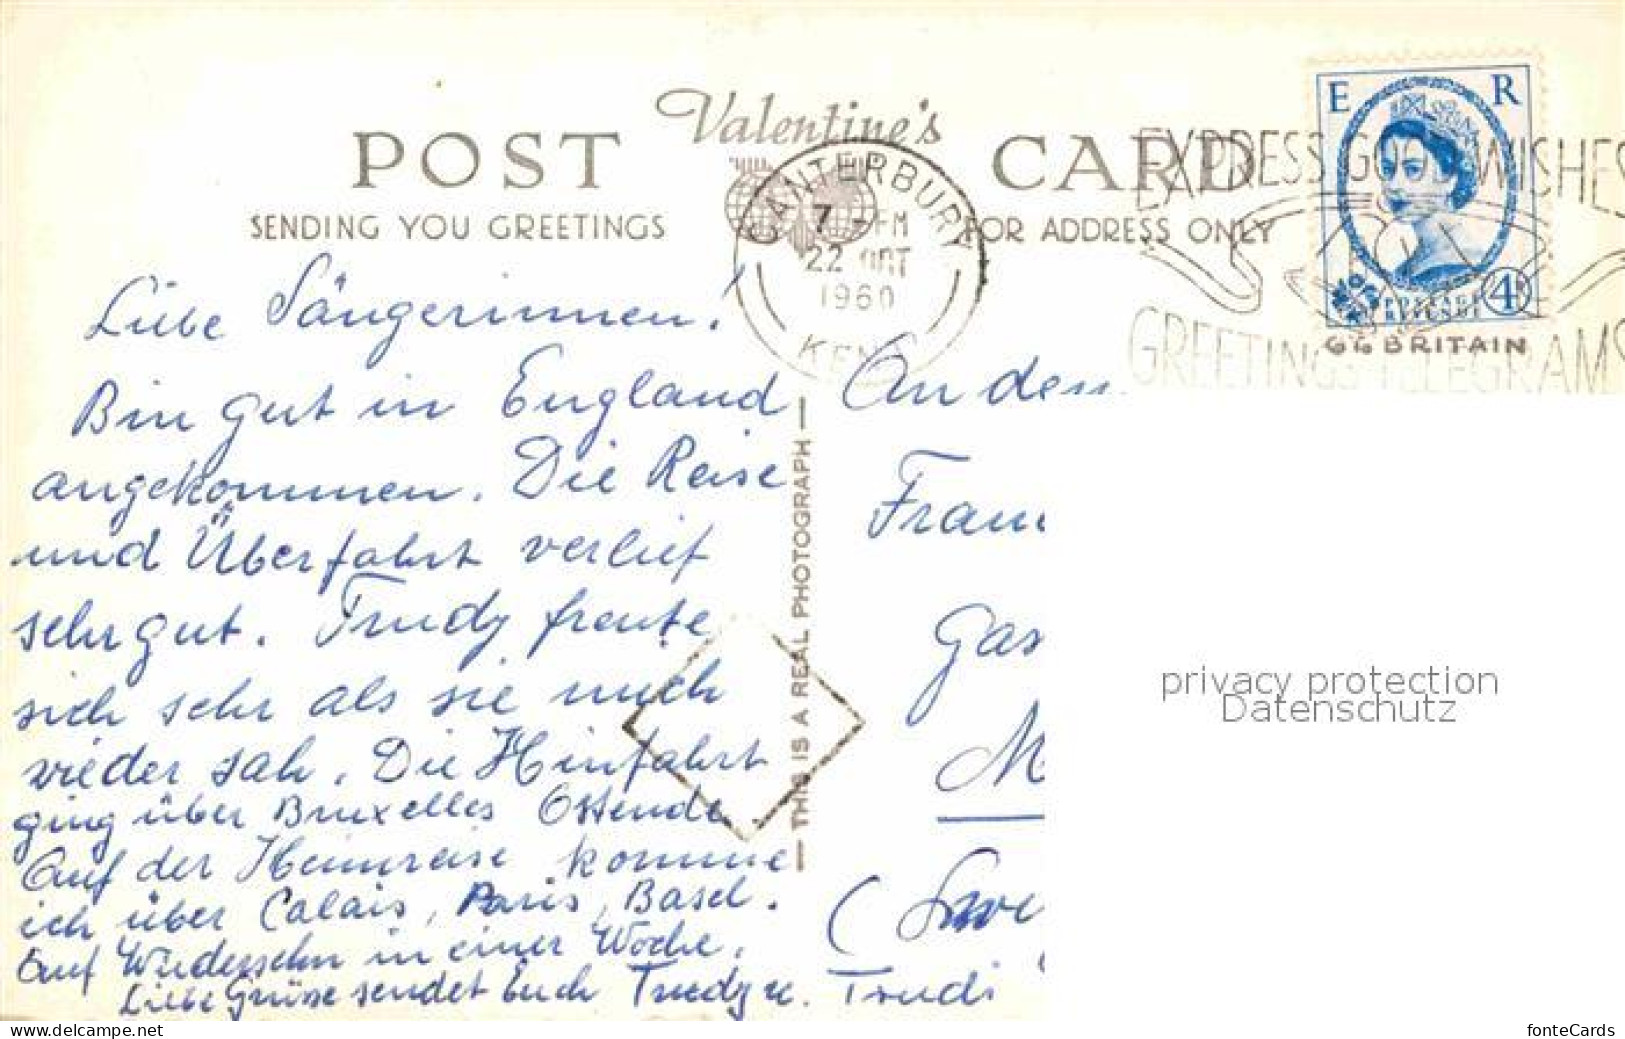 Valentine's
POST CARD
SENDING YOU GREETINGS
FOR ADDRESS ONLY
CANTERBURY
7 - PM
22 OCT
1960
KENT
EXPRESS GOOD WISHES
GREETINGS TELEGRAMS
E R
POSTAGE
REVENUE
4D
GG BRITAIN
Liebe Sängerinnen!
Bin gut in England
angekommen. Die Reise
und Überfahrt verlief
sehr gut. Trudy freute
sich sehr als sie mich
wieder sah. Die Hinfahrt
ging über Bruxelles Ostende.
Auf der Heimreise komme
ich über Calais, Paris, Basel.
Auf Wiedersehn in einer Woche.
Liebe Grüsse sendet Euch Trudy u. Trudi
— THIS IS A REAL PHOTOGRAPH —
An den
Frau
Gas
M
(
privacy protection
Datenschutz
https://www.delcampe.net
fonteCards